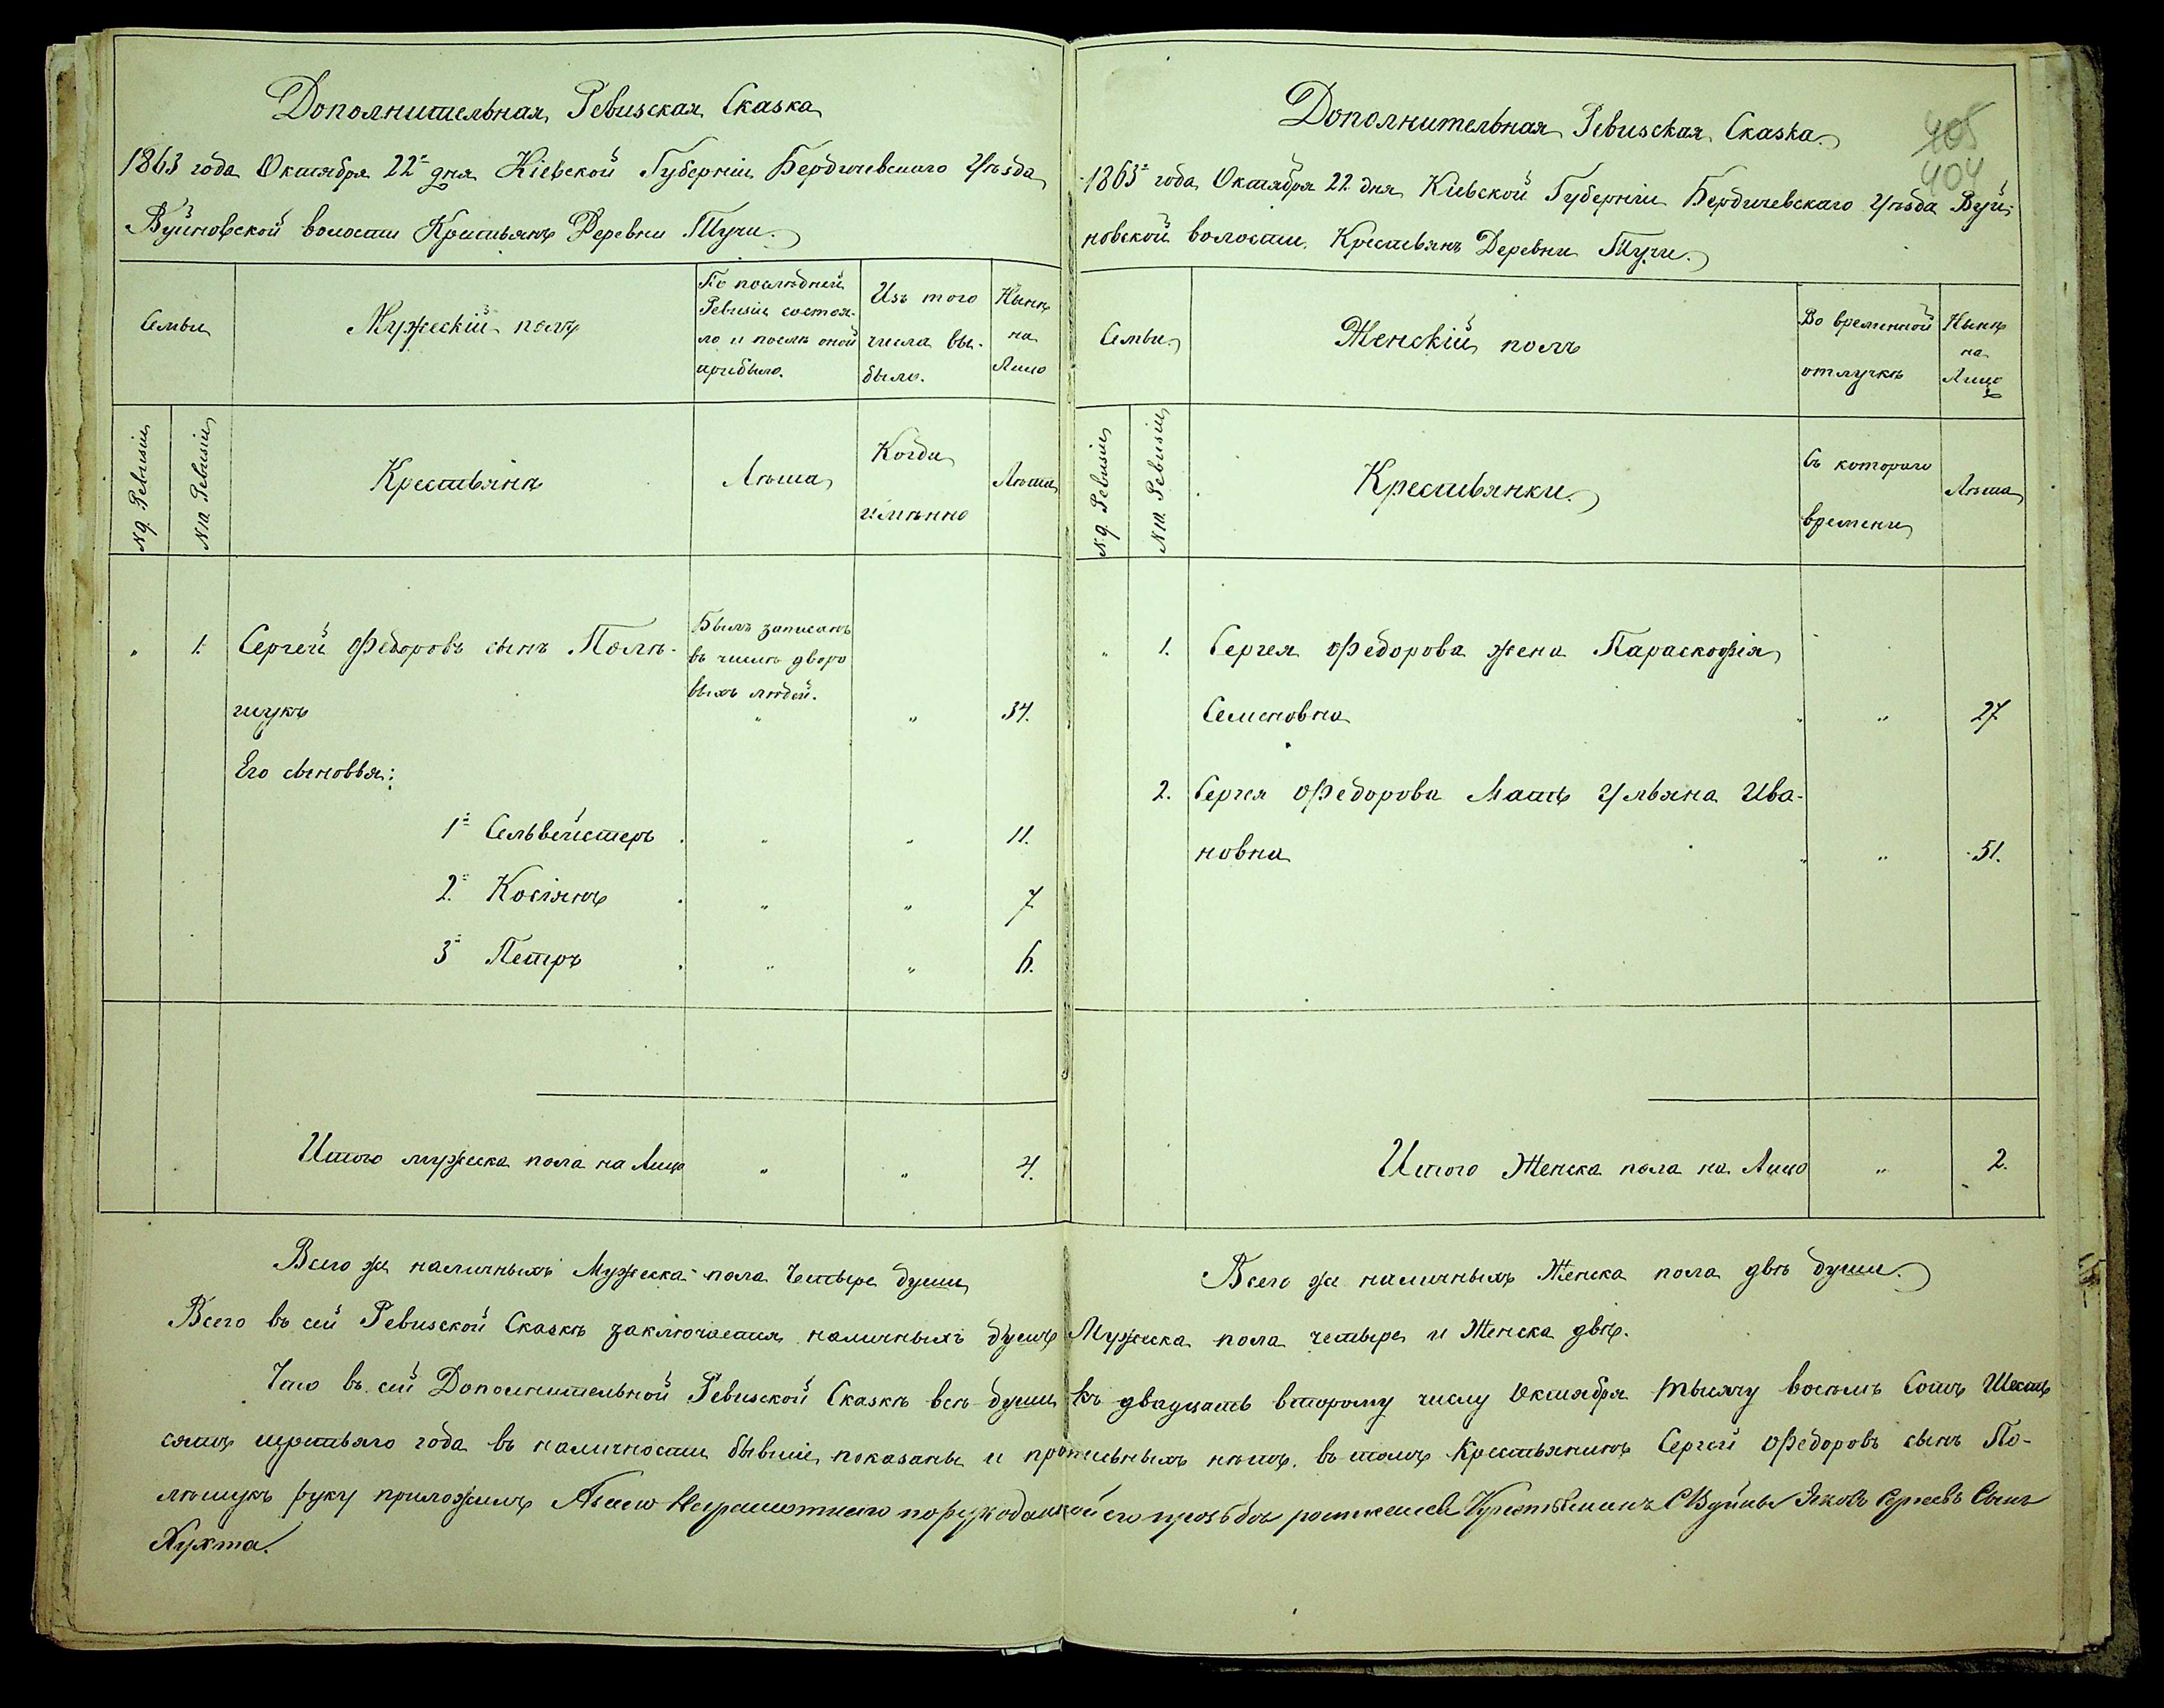 Дополнительная Ревизская Сказка
1863 года Октября 22го дня Кіевской Губерніи Бердичевскаго Уѣзда
Вуйновской волости Крестьянъ Деревни Тучи.
Семьи
Мужескій полъ
По послѣдней
Ревизіи состоя-
ло и послѣ оной
прибыло.
Изъ того
числа вы-
было.
Нынѣ
на
Лицо
№ 9. Ревизіи
№ 10. Ревизіи
Крестьяне
Лѣта
Когда
имѣнно
Лѣта
„ 1. Сергей Федоровъ сынъ Полѣ-
щукъ „ „ 34.
Былъ записанъ
въ числѣ дворо
выхъ людей.
Его сыновья:
1й Сельвейстеръ „ „ 11.
2й Косіянъ „ „ 7
3й Петръ „ „ 6.
Итого мужеска пола на Лицо „ „ 4.
Всего же наличныхъ Мужеска пола Четыре души
Дополнительная Ревизская Сказка.
405
404
1863го года Октября 22 дня Кіевской Губерніи Бердичевскаго Уѣзда Вуй-
новской волости. Крестьянъ Деревни Тучи.
Семьи.
Женскій полъ
Во временной
отлучкѣ
Нынѣ
на
Лицо
№ 9. Ревизіи
№ 10. Ревизіи
Крестьянки.
Съ котораго
времени
Лѣта
„ 1. Сергея Федорова жена Параскофія
Семеновна „ 27
2. Сергея Федорова Мать Ульяна Ива-
новна „ 51.
Итого Женска пола на Лицо „ 2.
Всего же наличныхъ Женска пола двѣ души.
Всего въ сей Ревизской Сказкѣ заключается наличныхъ душъ Мужеска пола четыре и Женска двѣ.
Что въ сей Дополнительной Ревизской Сказкѣ всѣ души къ двадцать второму числу Октября тысячу восемь Сотъ Шесть
сятъ третьяго года въ наличности бывшіе показаны и прописныхъ нѣтъ. въ томъ Крестьянинъ Сергей Федоровъ сынъ По-
лѣщукъ руку приложилъ А вмѣсто Неграмотнаго по рукоданной его прозьбѣ Крестьянинъ С Вуйны Яковъ Сергеевъ Сынъ
Кухта.